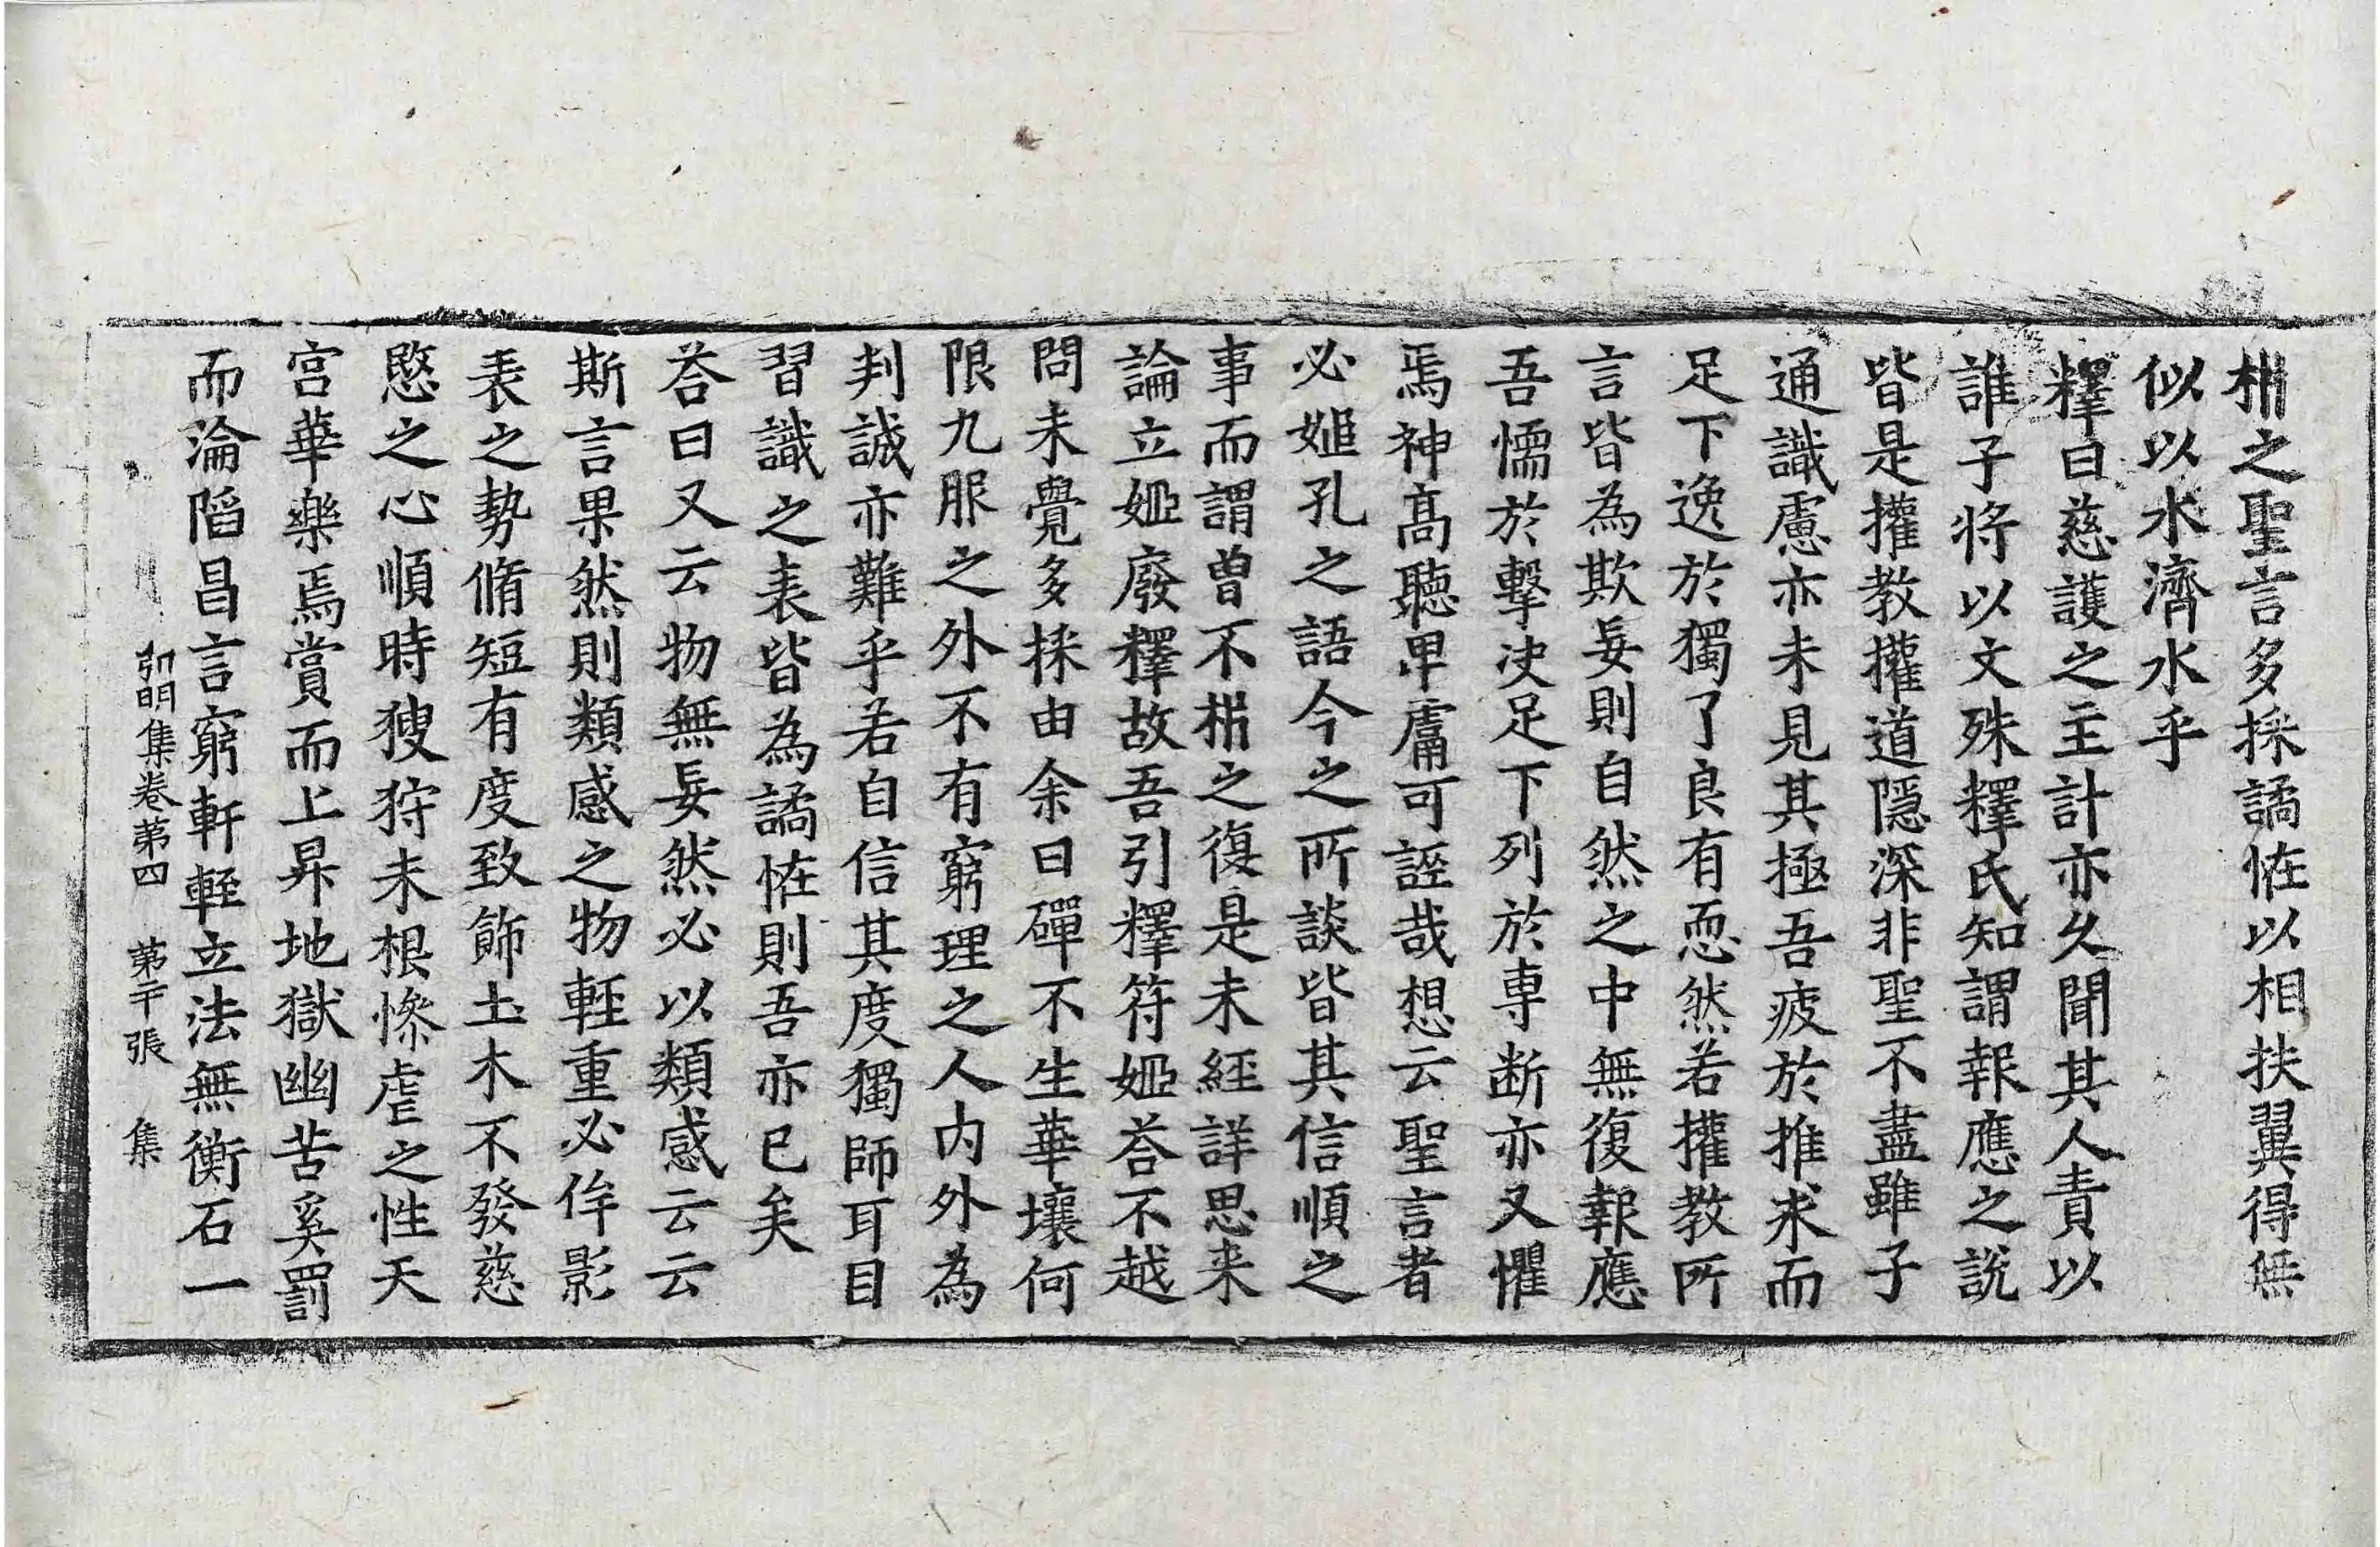 枏之聖言多採譎恠以相扶翼得無
似以水濟水乎
釋曰慈護之主計亦久聞其人責以
誰子將以文殊釋氏知謂報應之說
皆是攉教攉道隱深非聖不盡雖子
通識慮亦未見其極吾疲於推求而
足下逸於獨了良有恧然若攉教所
言皆為欺妄則自然之中無復報應
吾懦於擊決足下列於専断亦又懼
焉神髙聽卑庸可誣哉想云聖言者
必姬孔之語今之所談皆其信順之
事而謂曽不枏之復是未經詳思来
論立姬廢釋故吾引釋符姬荅不越
問未覺多採由余日磾不生華壤何
限九服之外不有窮理之人内外為
判誠亦難乎若自信其度獨師耳目
習識之表皆為譎恠則吾亦已矣
荅曰又云物無妄然必以類感云云
斯言果然則類感之物輕重必侔影
表之勢脩短有度致飾土木不發慈
愍之心順時獀狩未根慘虐之性天
宮華樂焉賞而上昇地獄幽苦奚罰
而淪陷昌言窮軒輊立法無衡石一
弘明集卷苐四　苐二十張　集